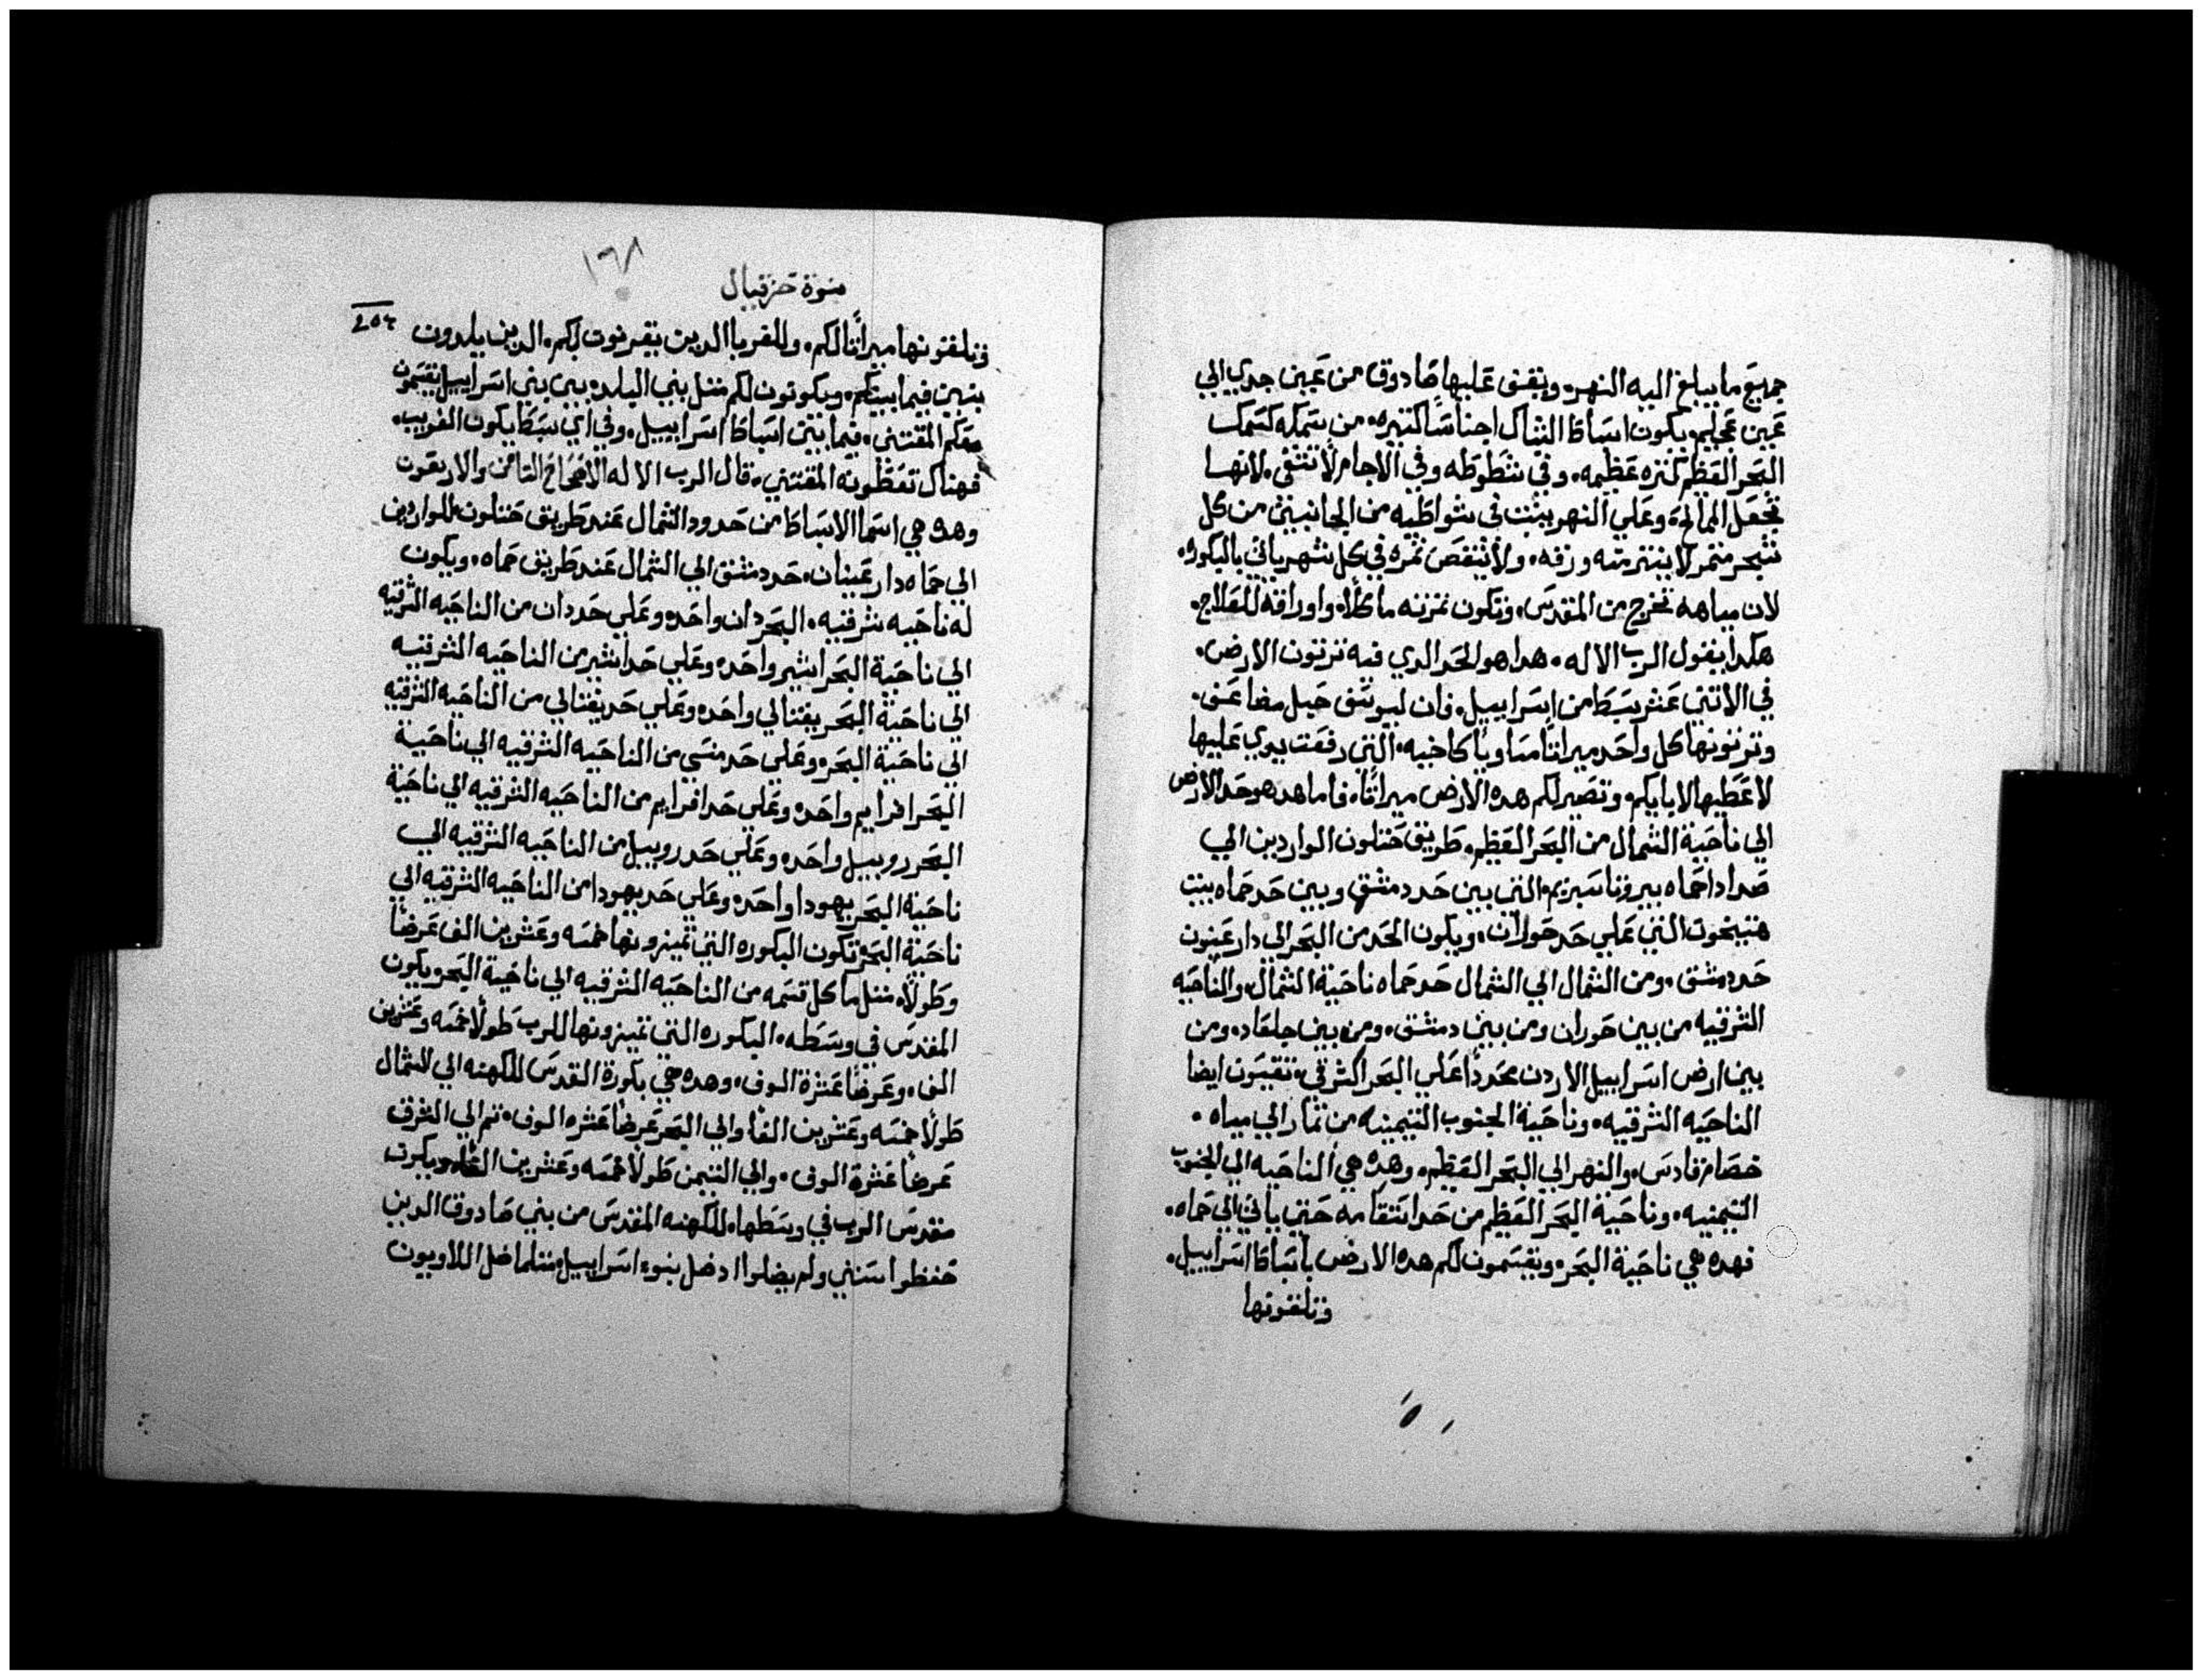 جميع ما يبلغ اليه النهر. ويقف عليها صادوق من عين جدي الي
عين عجليم. يكون انبساط الشباك اجناسًا كثيره. من سمكه كسمك
البحر العظم كثره عظيمه. وفي شطوطه وفي الاجام لا تشفي. لانها
تجعل الممالحه وعلي النهر ينبت في شواطيه من الجانبين من كل
شجر مثمر لا ينتر منه ورقه. ولا ينقص ثمره في كل شهر ياتي بالبكوره.
لان مياهه تخرج من المقدس. وتكون ثمرته ماكلًا. واوراقه للعلاج.
هكدا يقول الرب الاله. هدا هو الحد الدي فيه ترثون الارض.
في الاثني عشر سبطا من اسراييل. فان ليوسف حبل مضاعف.
وترثونها كل واحد ميراثًا مساويًا كاخيه. التي رفعت يدي عليها
لاعطيها لابايكم. وتصير لكم هده الارض ميراثًا. فاما هدا هو حد الارض
الي ناحية الشمال من البحر العظيم. طريق حتلون الواردين الي
صدادا حماه بيروتا سبريم. التي بين حد دمشق وبين حد حماه بيت
هتيخون التي علي حد حوران. ويكون الحد من البحر الي دار عينون
حد دمشق. ومن الشمال الي الشمال حد حماه ناحية الشمال. والناحيه
الشرقيه من بين حوران ومن بين دمشق. ومن بين جلعاد. ومن
بين ارض اسراييل الاردن محددًا علي البحر الشرقي. تقيسون ايضا
الناحيه الشرقيه. وناحية الجنوب التيمينه من تمار الي مياه.
خصام قادس. والنهر الي البحر العظيم. وهده هي الناحيه الي الجنوب
التيمنيه. وناحية البحر العظيم من حد استقامه حتي ياتي الي حماه.
فهده هي ناحية البحر. وتقسمون لكم هده الارض باسباط اسراييل.
وتلقونها
١٦٨
نبوة حزقيال
204
وتلقونها ميراثًا لكم. وللغربا الدين يقربون لكم. الدين يلدون
بنين فيما بينكم. ويكونون لكم مثل بني البلد. بين بني اسراييل يقسمون
معكم المقتني. فيما بين اسباط اسراييل. وفي اي سبط يكون الغريب.
فهناك تعطونه المقتني. قال الرب الاله الاصحاح الثامن والاربعون
وهده هي اسما الاسباط من حدود الشمال عند طريق حتلون للواردين
الي حماه دار عينان. حد دمشق الي الشمال عند طريق حماه. ويكون
له ناحيه شرقيه. البحر دان واحده وعلي حد دان من الناحيه الشرقيه
الي ناحية البحر اشير واحده وعلي حد اشير من الناحيه الشرقيه
الي ناحية البحر يفتالي واحده وعلي حد يفتالي من الناحيه الشرقيه
الي ناحية البحر. وعلي حد منسي من الناحيه الشرقيه الي ناحية
البحر افرايم واحده وعلي حد افرايم من الناحيه الشرقيه الي ناحية
البحر روبيل واحده وعلي حد روبيل من الناحيه الشرقيه الي
ناحية البحر يهودا واحده وعلي حد يهودا من الناحيه الشرقيه الي
ناحية البحر تكون البكوره التي تميزونها خمسه وعشرين الف عرضًا
وطولًا. مثل ما كل قسمه من الناحيه الشرقيه الي ناحية البحر ويكون
المقدس في وسطه. البكوره التي تميزونها للرب طولًا خمسه وعشرين
الف. وعرضًا عشرة الوف. وهده هي بكورة القدس للكهنه الي الشمال
طولًا خمسه وعشرين الفًا. والي البحر عرضًا عشره الوف. ثم الي الشرق
عرضًا عشرة الوف. والي التيمن طولًا خمسه وعشرين الفًا. ويكون
مقدس الرب في وسطها. للكهنه المقدس من بني صادوق الدين
حفظوا سنني ولم يضلوا اد ضل بنو اسراييل. مثلما ضل اللاويون